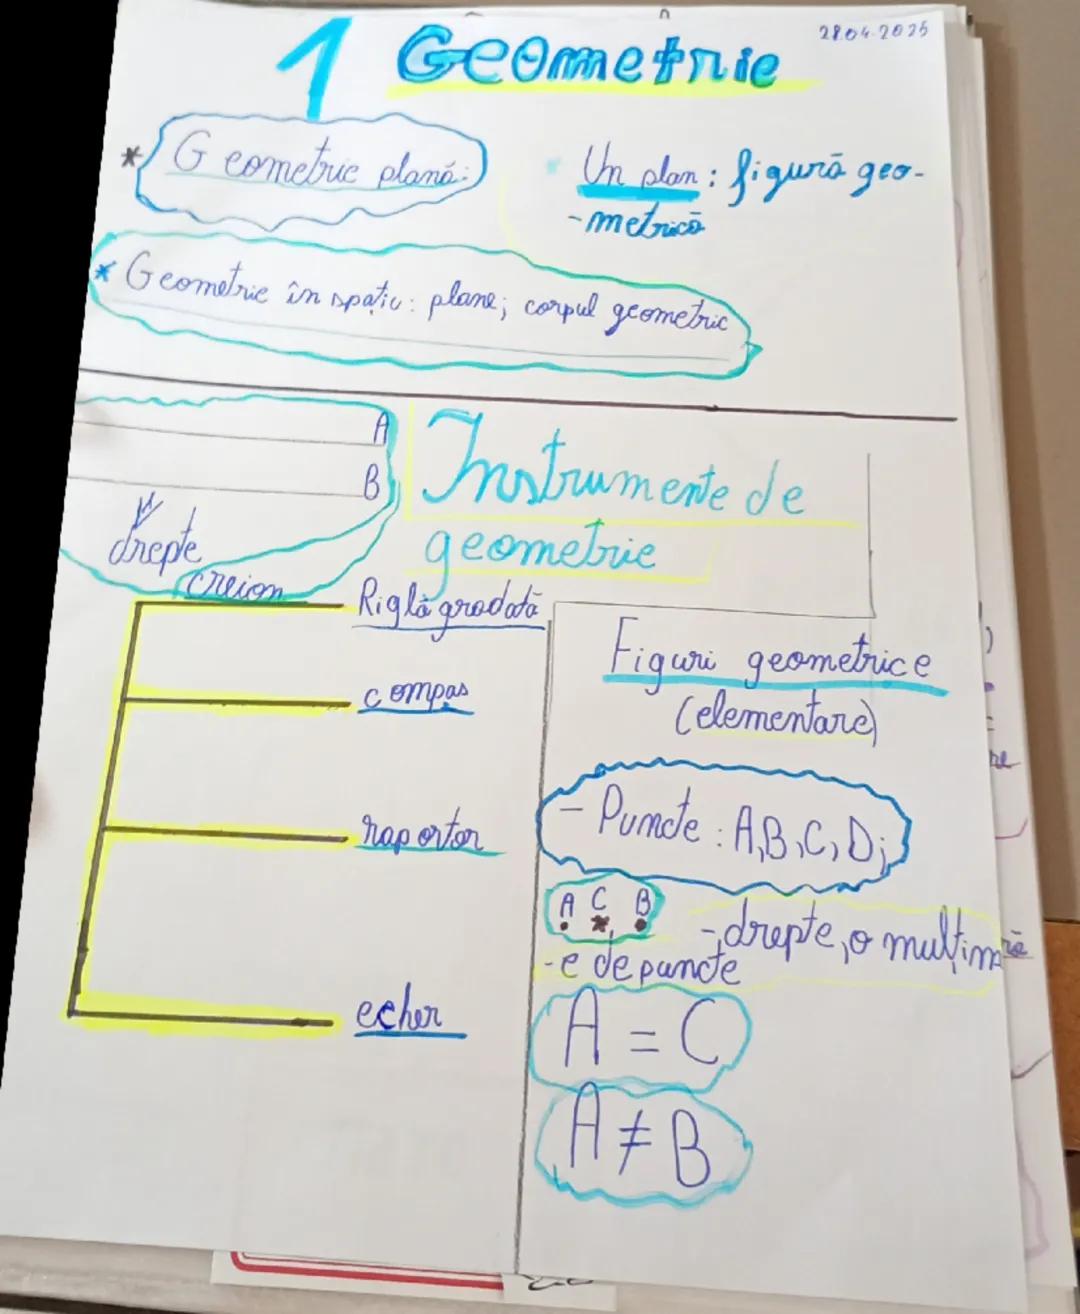 28.04.2025
1 Geometrie
* Geometrie plană:
* Un plan: figură geo-
-metrică
* Geometrie în spațiu: plane; corpul geometric
A
B
drepte
Instrumente de
geometrie
creion
Riglă gradată
compas
raportor
echer
Figuri geometrice
(elementare)
- Puncte: A,B,C,D;
A C B
- drepte, o mulțim
-e de puncte
A = C
A ≠ B